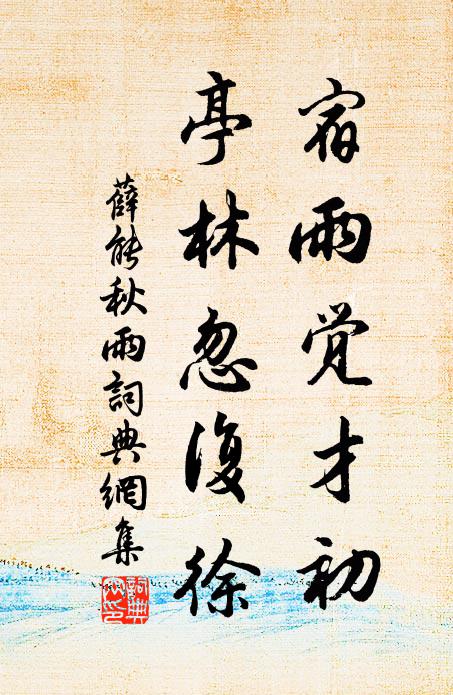 宿雨觉才初
亭林忽復徐
薛能秋雨詞典網集